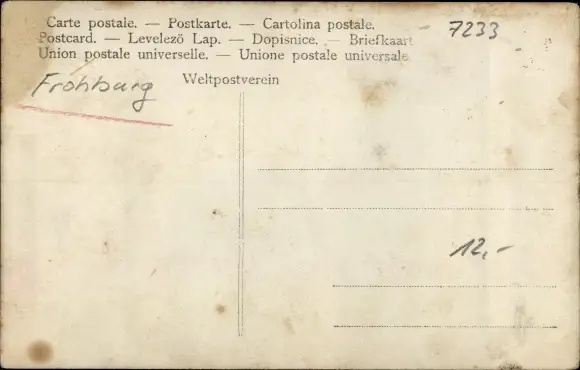 Carte postale. — Postkarte. — Cartolina postale.
Postcard. — Levelező Lap. — Dopisnice. — Briefkaart
Union postale universelle. — Unione postale universale
Weltpostverein
7233
Frohburg
12,-